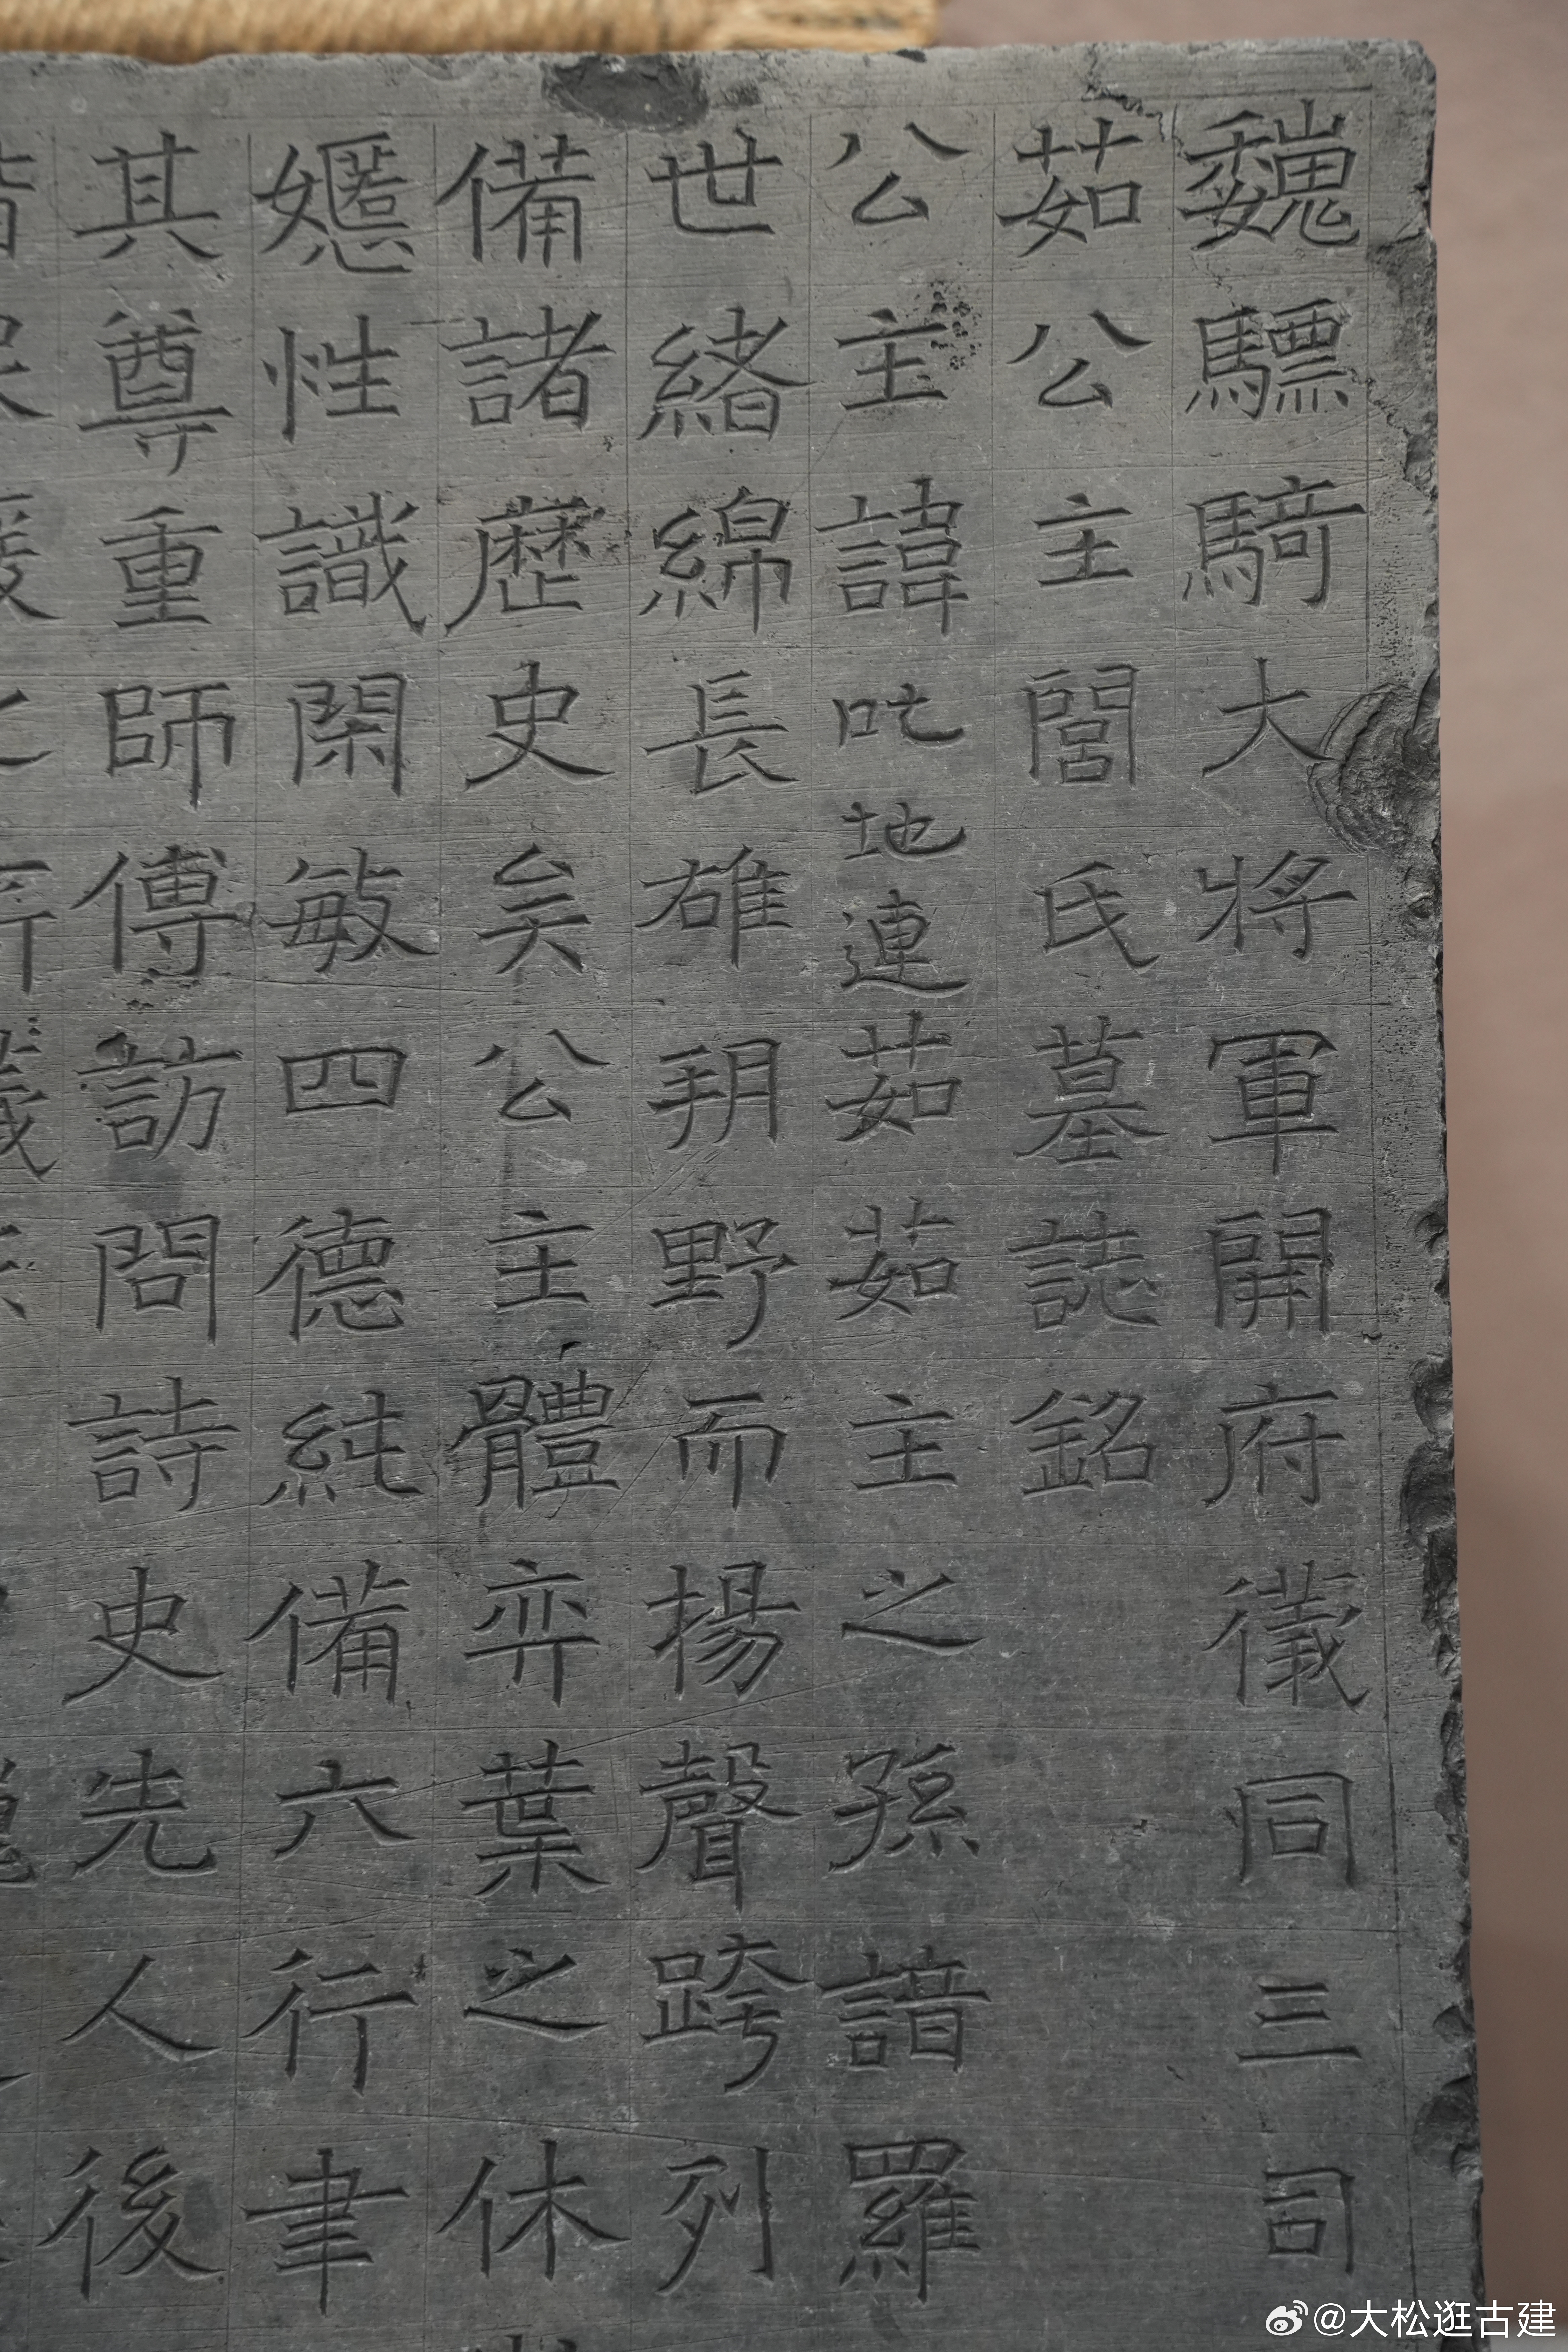 魏驃騎大將軍開府儀同三司
茹公主閭氏墓誌銘
公主諱叱地連茹茹主之孫譜羅
世緒綿長雄朔野而揚聲跨列
備諸歷史矣公主體弈葉之休
嬺性識閑敏四德純備六行聿
其尊重師傅訪問詩史先人後
@大松逛古建